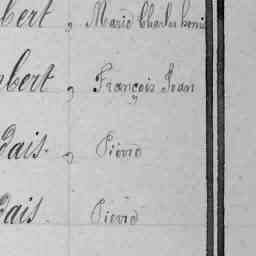 bert, Marie Charles Louis
bert, François Jean
dais, Pierre
dais Pierre